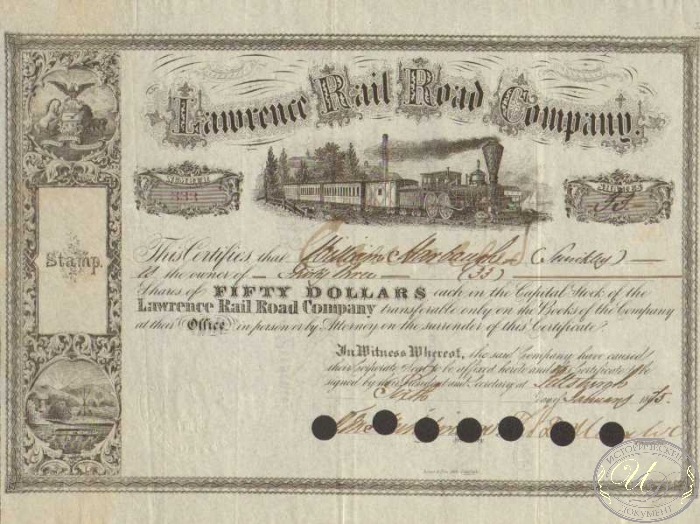 Lawrence Rail Road Company.
Stamp.
This Certifies that William (Sewickley)
is the owner of Thirty three (33)
Shares of FIFTY DOLLARS each in the Capital Stock of the
Lawrence Rail Road Company transferable only on the Books of the Company
at their Office in person or by Attorney on the surrender of this Certificate.
In Witness Whereof, the said Company have caused
their Corporate Seal to be affixed hereto and this Certificate to be
signed by their President and Secretary at Pittsburgh
day January 1875.
ИСТОРИЧЕСКИЙ
ДОКУМЕНТ